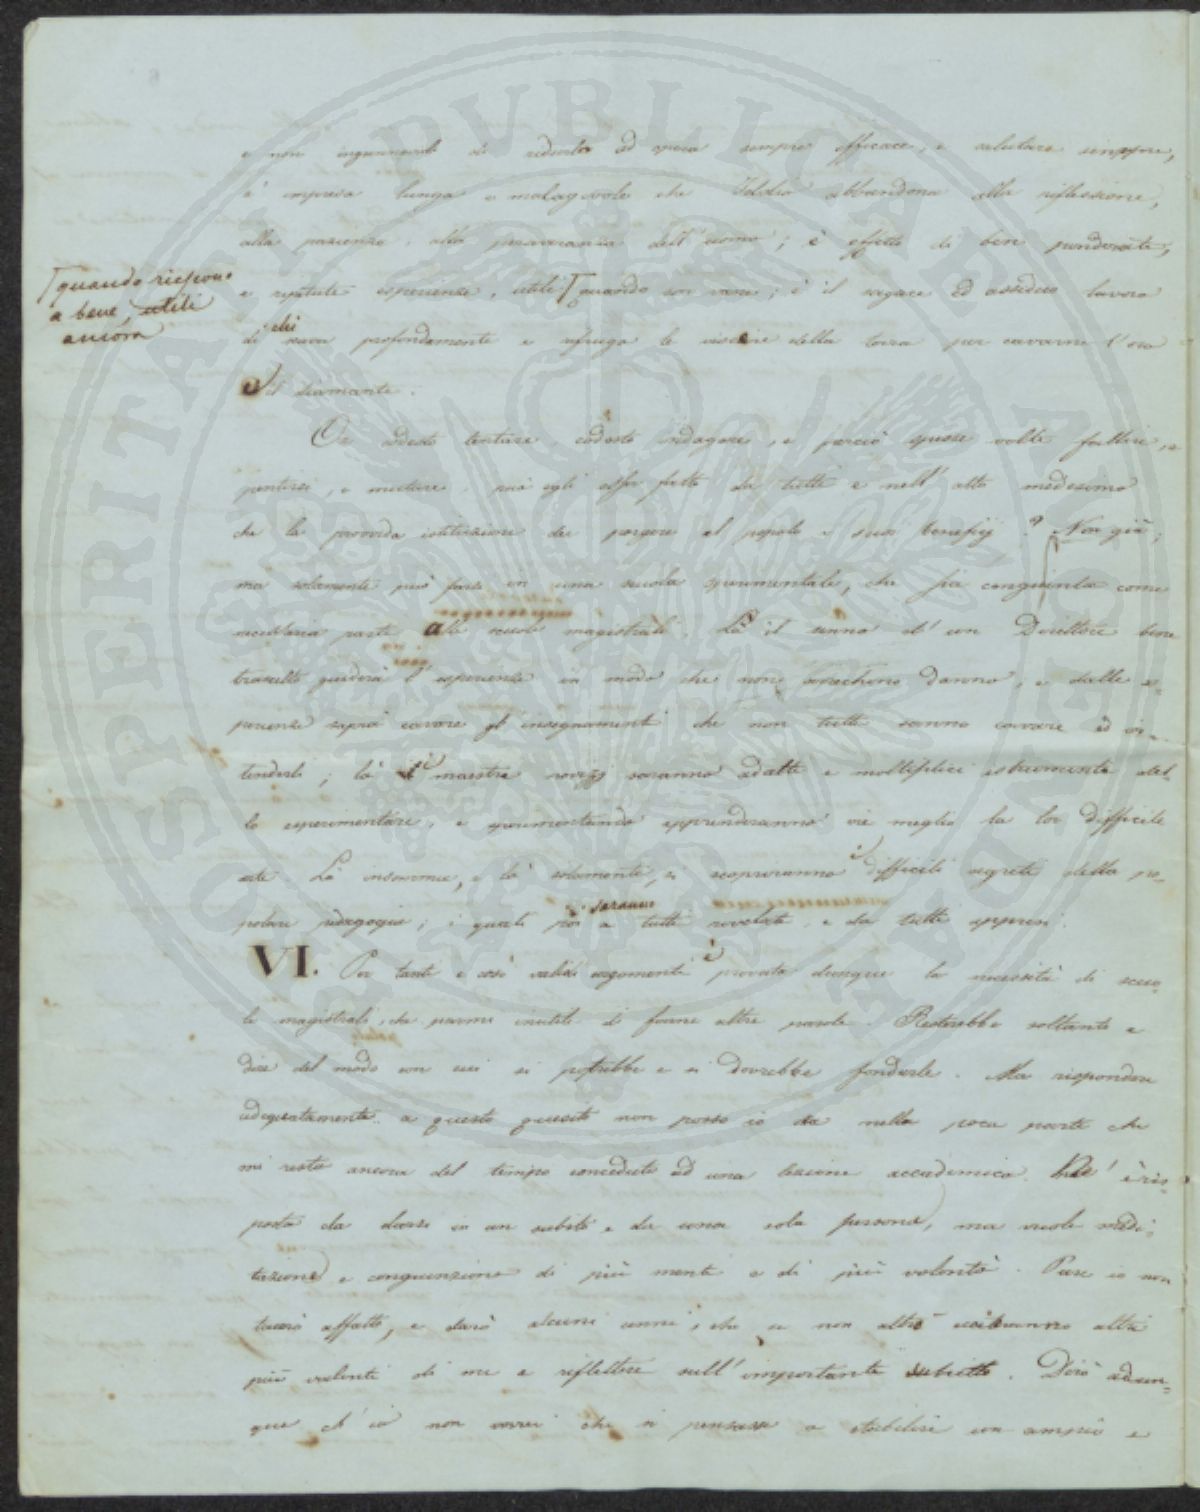 e non ingannevole di ridurlo ad opera sempre efficace, e salutare sempre,
è impresa lunga e malagevole che Iddio abbandona alla riflessione,
alla pazienza, alla perseveranza dell'uomo; è effetto di ben ponderate,
e ripetute esperienze, utili quando son vere; è il sagace ed assiduo lavoro
quando riescono
a bene, utili
ancora
di chi cava profondamente e rifruga le viscere della terra per cavarne l'oro
il diamante.
Or codesto tentare, codesto indagare, e perciò spesse volte fallire, e
pentirsi, e mutare, può egli esser fatto da tutti e nell'atto medesimo
che la provvida istituzione dee porgere al popolo i suoi benefizj? Non già;
ma solamente può farsi in una scuola sperimentale, che sia congiunta come
necessaria parte alle scuole magistrali. Là il senno d'un Direttore bene
trascelto guiderà l'esperienze in modo che non arrechino danno, e dalle es-
perienze saprà cavare gl'insegnamenti che non tutti sanno cavare ed in-
tenderli; là i maestri novizj saranno adatti e molteplici istrumenti del-
lo esperimentare, e sperimentando apprenderanno vie meglio la lor difficile
arte. Là insomma, e là solamente, si scopriranno i difficili segreti della po-
polare pedagogia; i quali poi saranno a tutti rivelati, e da tutti appresi.
VI. Per tanti e così validi argomenti è provata dunque la necessità di scuo-
le magistrali, che parmi inutile di farne altre parole. Resterebbe soltanto a
dire del modo con cui si potrebbe e si dovrebbe fondarle. Ma rispondere
adequatamente a questo quesito non posso io nella poca parte che
mi resta ancora del tempo conceduto ad una lezione accademica. Nè è ris-
posta da darsi in un subito e da una sola persona, ma vuole medi-
tazione e congiunzione di più menti e di più volontà. Pure io non
tacerò affatto, e darò alcuni cenni, che se non altro ecciteranno altri
più valenti di me a riflettere sull'importante subietto. Dirò adun-
que ch'io non vorrei che si pensasse a stabilire con ampio e